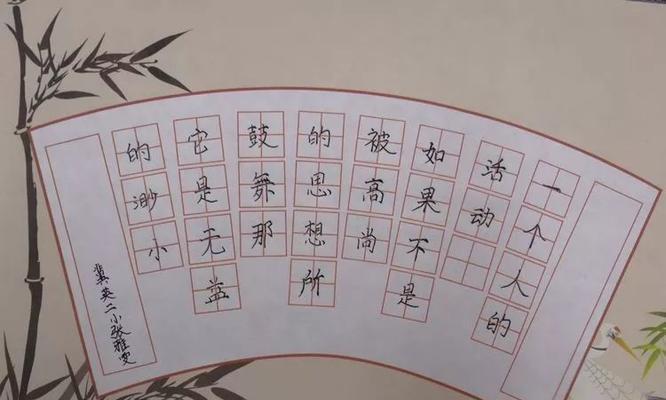 一个人的
活动
如果不是
被高尚
的思想所
鼓舞那
它是无益
的渺小
冀英二小张雅雯